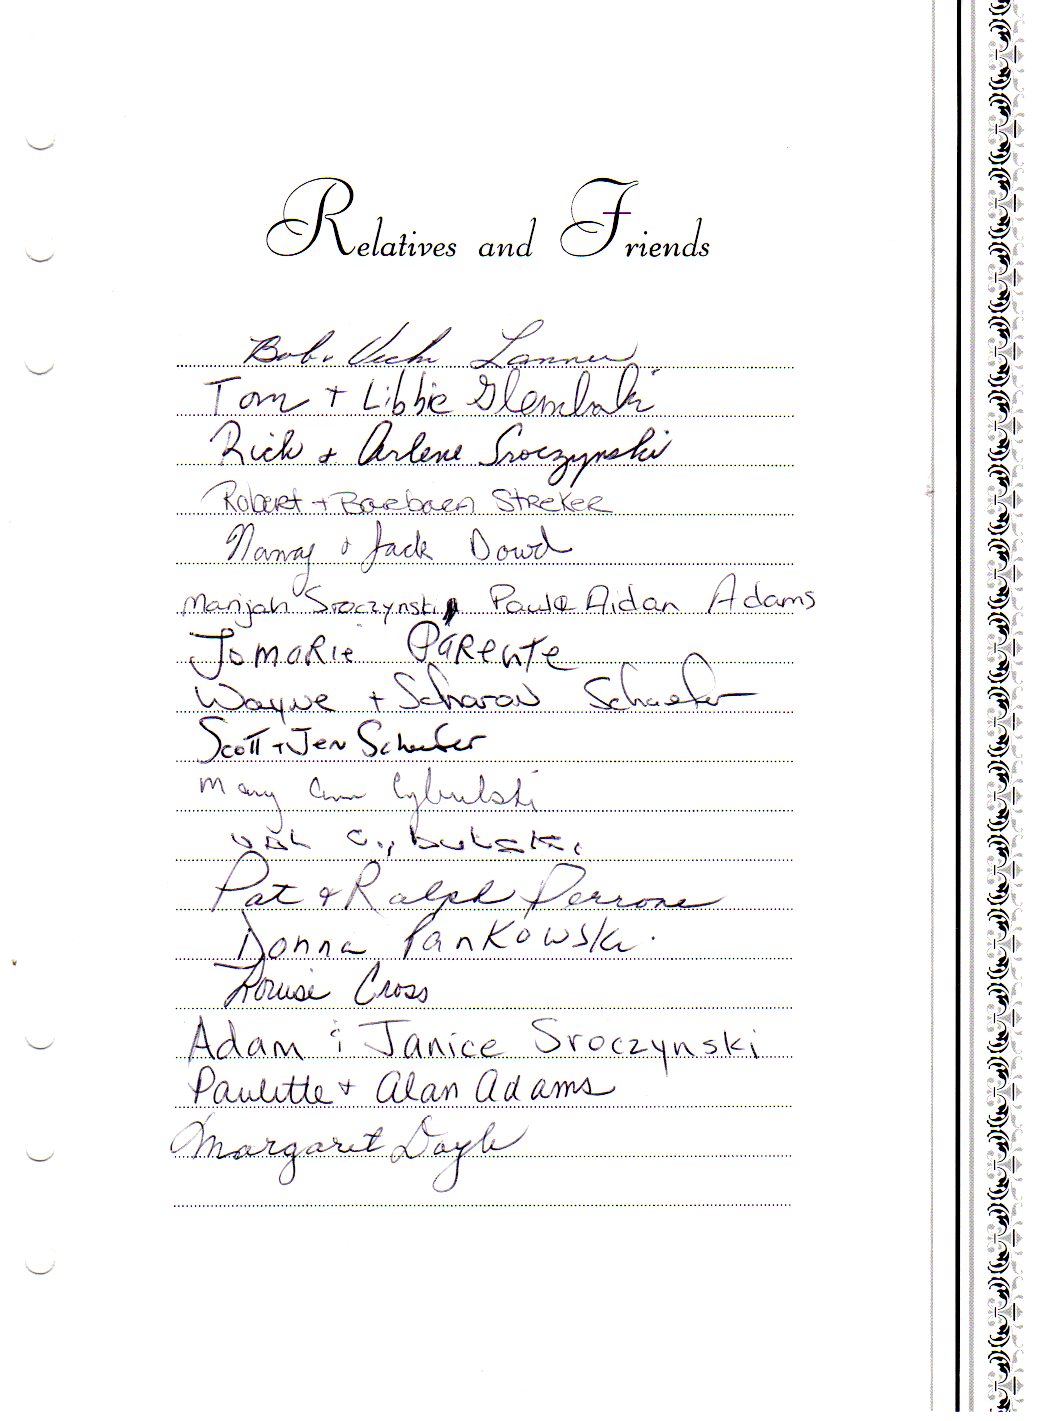 Relatives and Friends
Bob + Vicki Lanner
Tom + Libbie Glembocki
Rich + Arlene Sroczynski
Robert + Barbara Streker
Nancy & Jack Dowd
Marijah Sroczynski, Paul & Aidan Adams
Jomarie Parente
Wayne + Scharon Schaefer
Scott + Jen Schaefer
Mary Ann Cybulski
Cybulski
Pat & Ralph Perrone
Donna Pankowski.
Louise Cross
Adam & Janice Sroczynski
Paulette + Alan Adams
Margaret Doyle